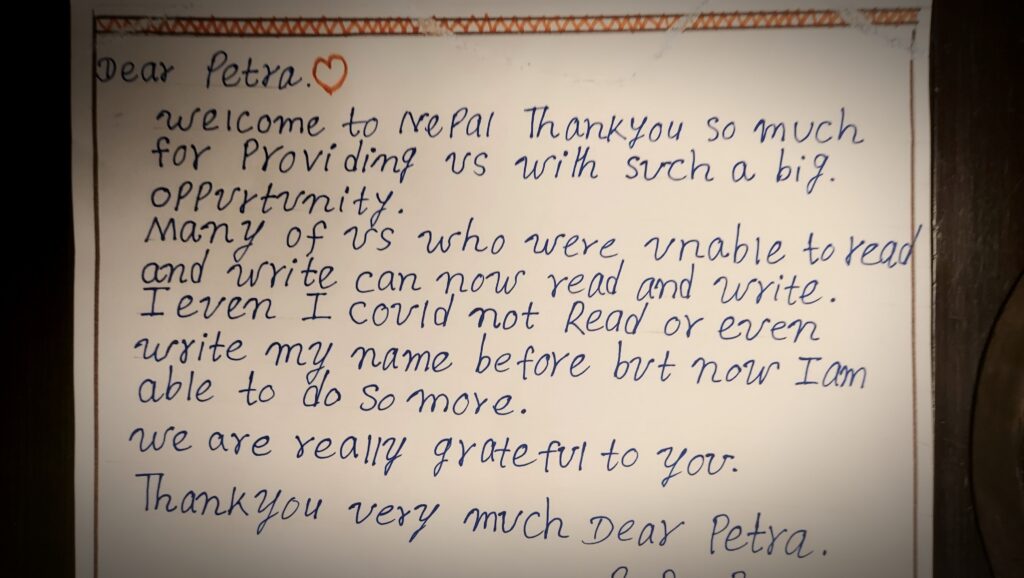 Dear Petra.
Welcome to Nepal Thankyou so much
for Providing us with such a big.
oppurtunity.
Many of us who were unable to read
and write can now read and write.
I even I could not Read or even
write my name before but now I am
able to do so more.
We are really grateful to you.
Thankyou very much Dear Petra.